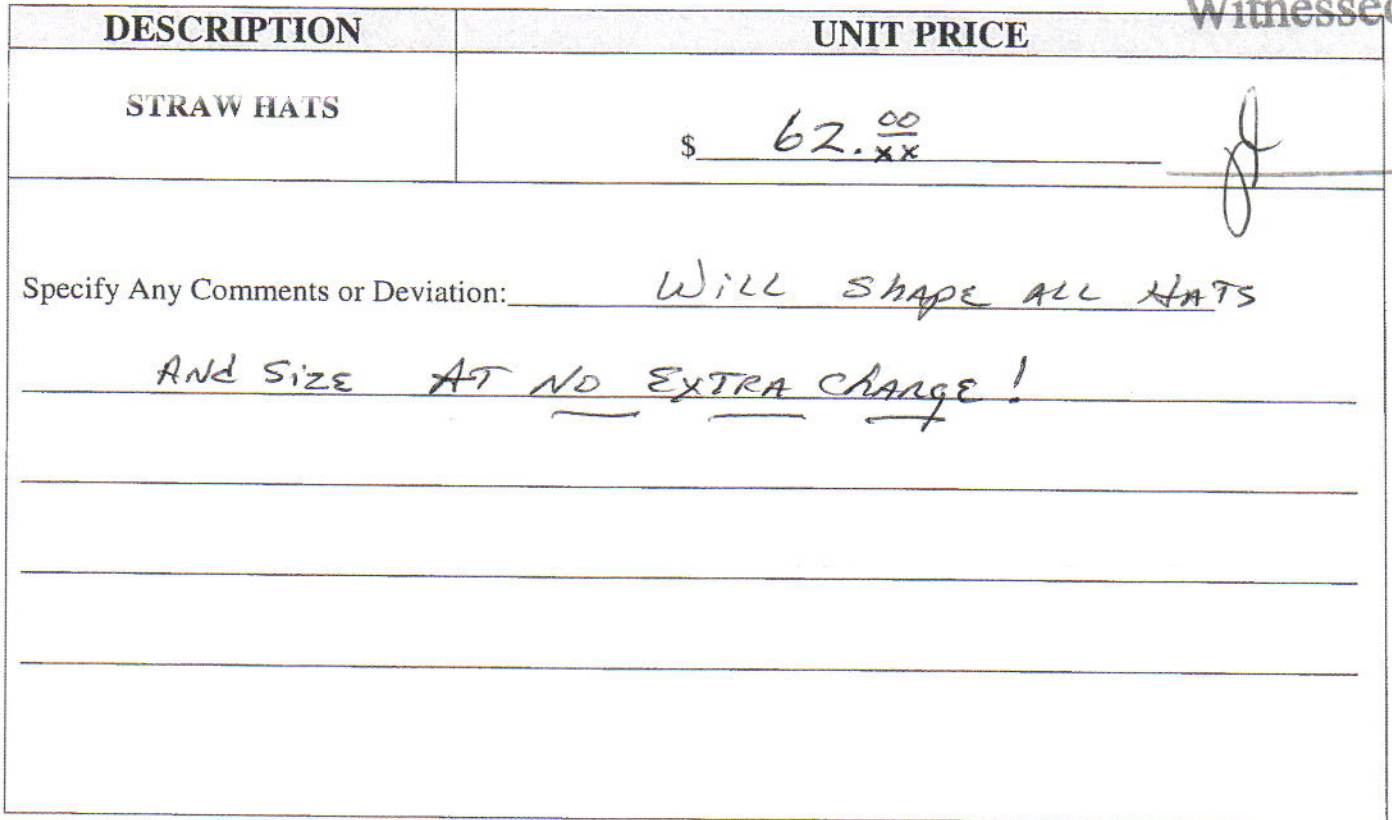 Witnessed
DESCRIPTION UNIT PRICE
STRAW HATS
$ 62.00/xx
Specify Any Comments or Deviation: Will Shape All Hats
And Size At No Extra Charge!